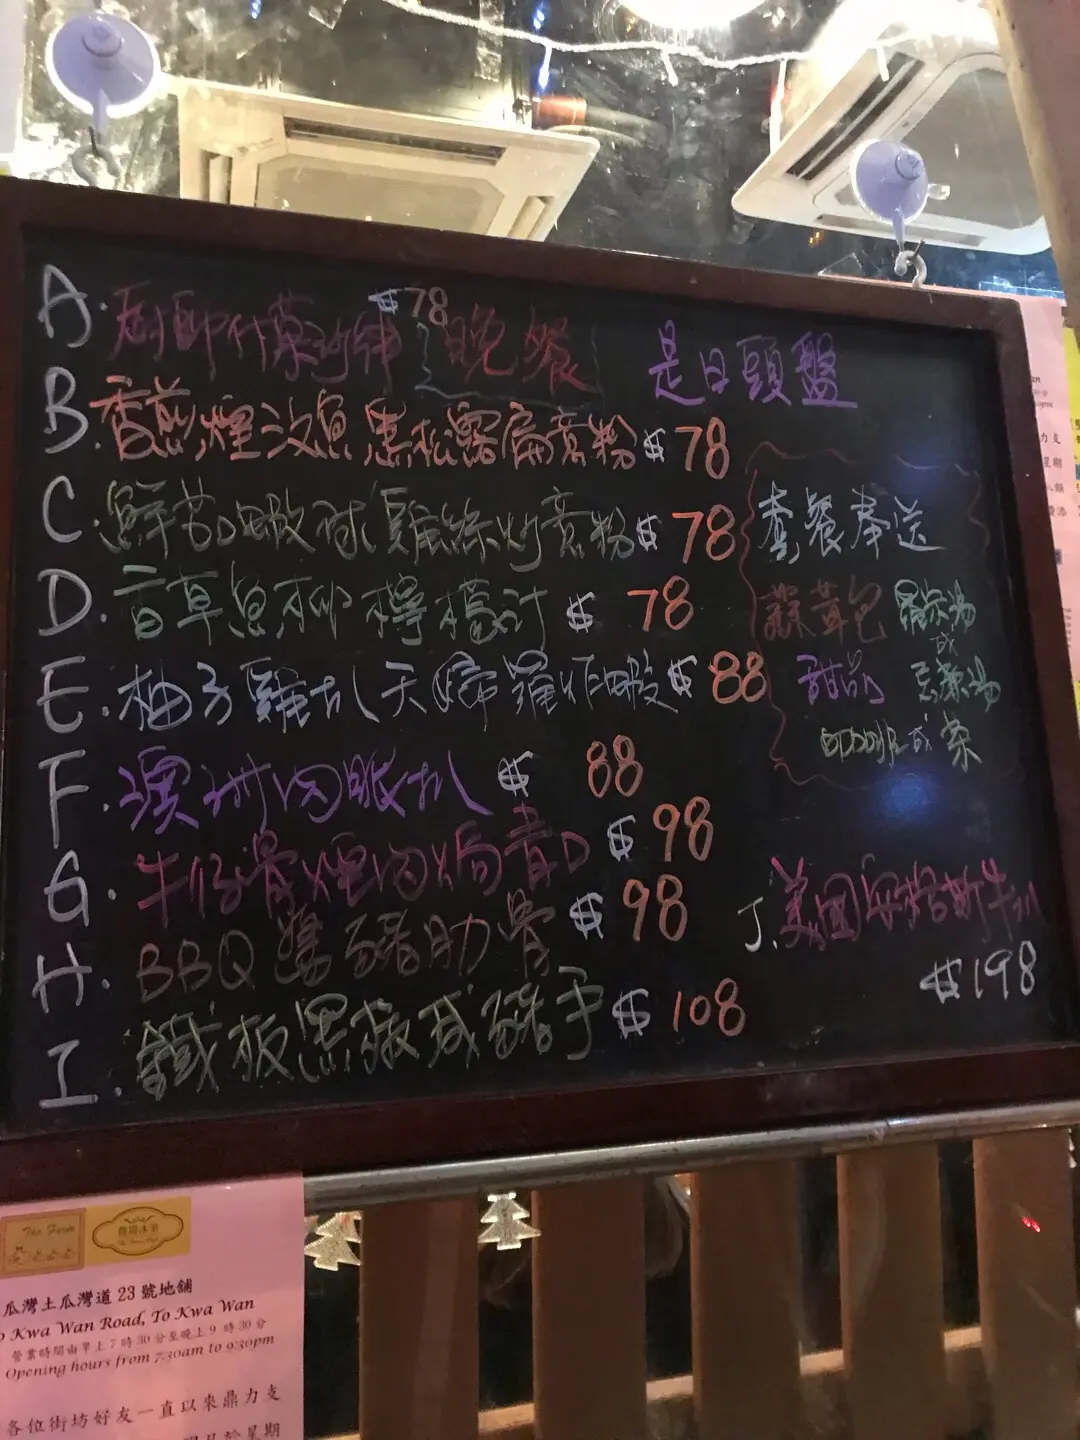 A. 廚師什菜沙律 $78
晚餐
是日頭盤
B. 香煎煙三文魚黑松露扁意粉 $78
C. 鮮茄蝦球雞絲炒意粉 $78
D. 香草魚柳檸檬汁 $78
E. 柚子雞扒天婦羅炸蝦 $88
F. 澳洲肉眼扒 $88
G. 牛仔骨煙肉焗青口 $98
H. BBQ 豬肋骨 $98
I. 鐵板黑椒咸豬手 $108
套餐奉送
包 羅宋湯
或
甜品 湯
咖啡或茶
J. 美國安格斯牛扒
$198
The Farm
瓜灣土瓜灣道 23 號地舖
Kwa Wan Road, To Kwa Wan
營業時間由早上 7 時 30 分至晚上 9 時 30 分
Opening hours from 7:30am to 9:30pm
各位街坊好友一直以來鼎力支